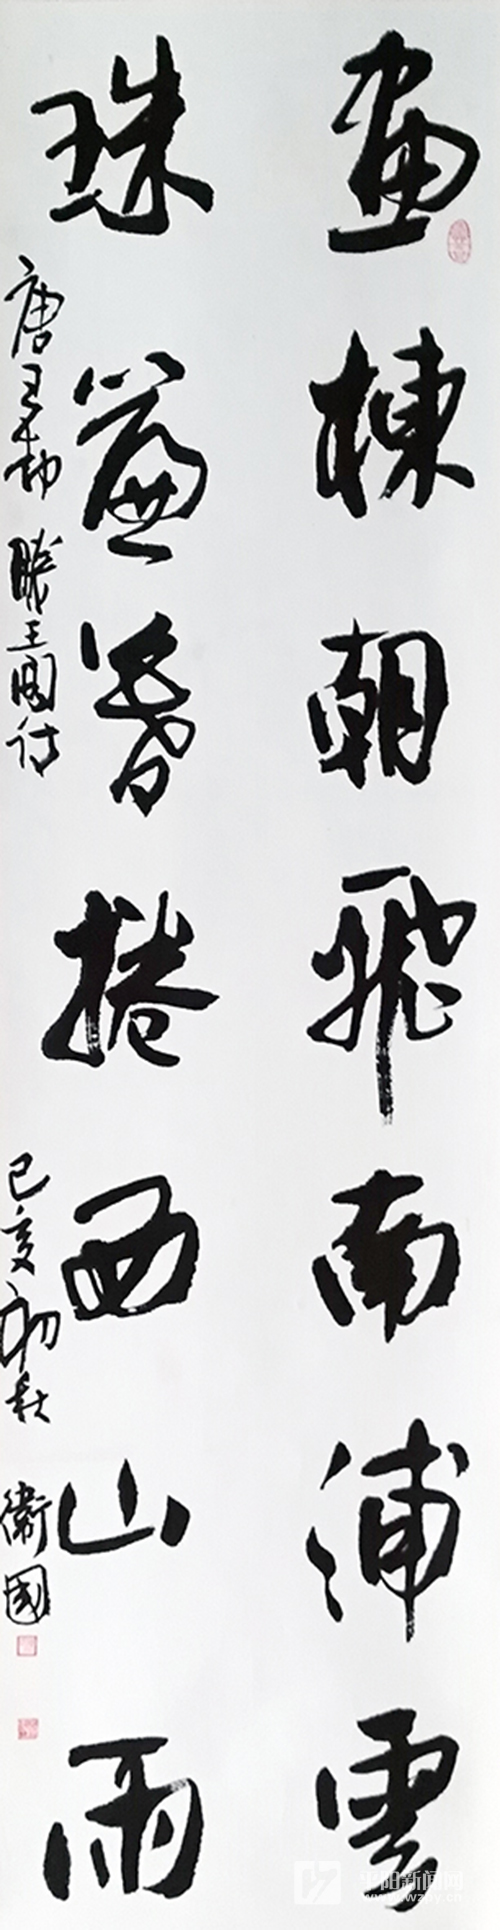 畫棟朝飛南浦雲
珠簾暮捲西山雨
唐王勃 滕王閣詩
己亥初秋 衛國